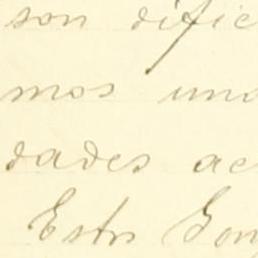 son dific
mos una
dades ac
Estr Gon